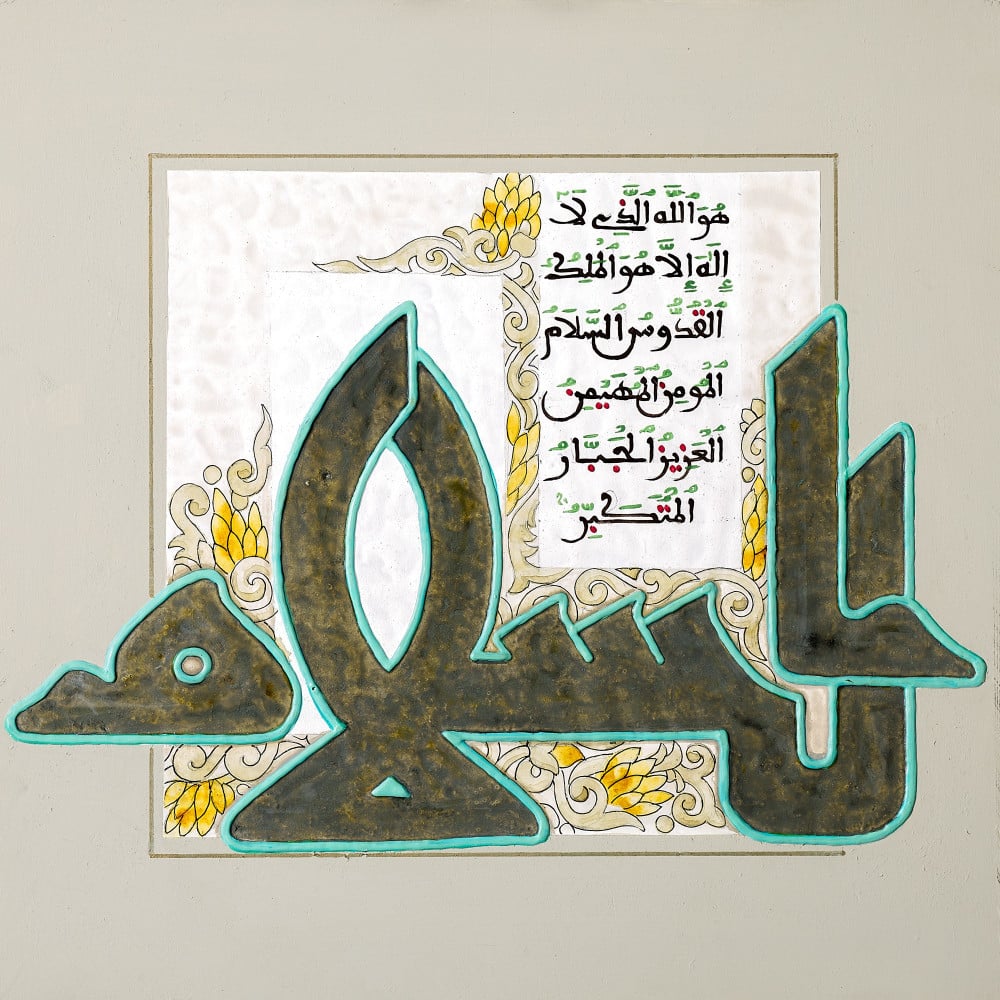 هُوَ اللَّهُ الَّذِي لَا
إِلَٰهَ إِلَّا هُوَ الْمَلِكُ
الْقُدُّوسُ السَّلَامُ
الْمُومِنُ الْمُهَيْمِنُ
الْعَزِيزُ الْجَبَّارُ
الْمُتَكَبِّرُ
السلام